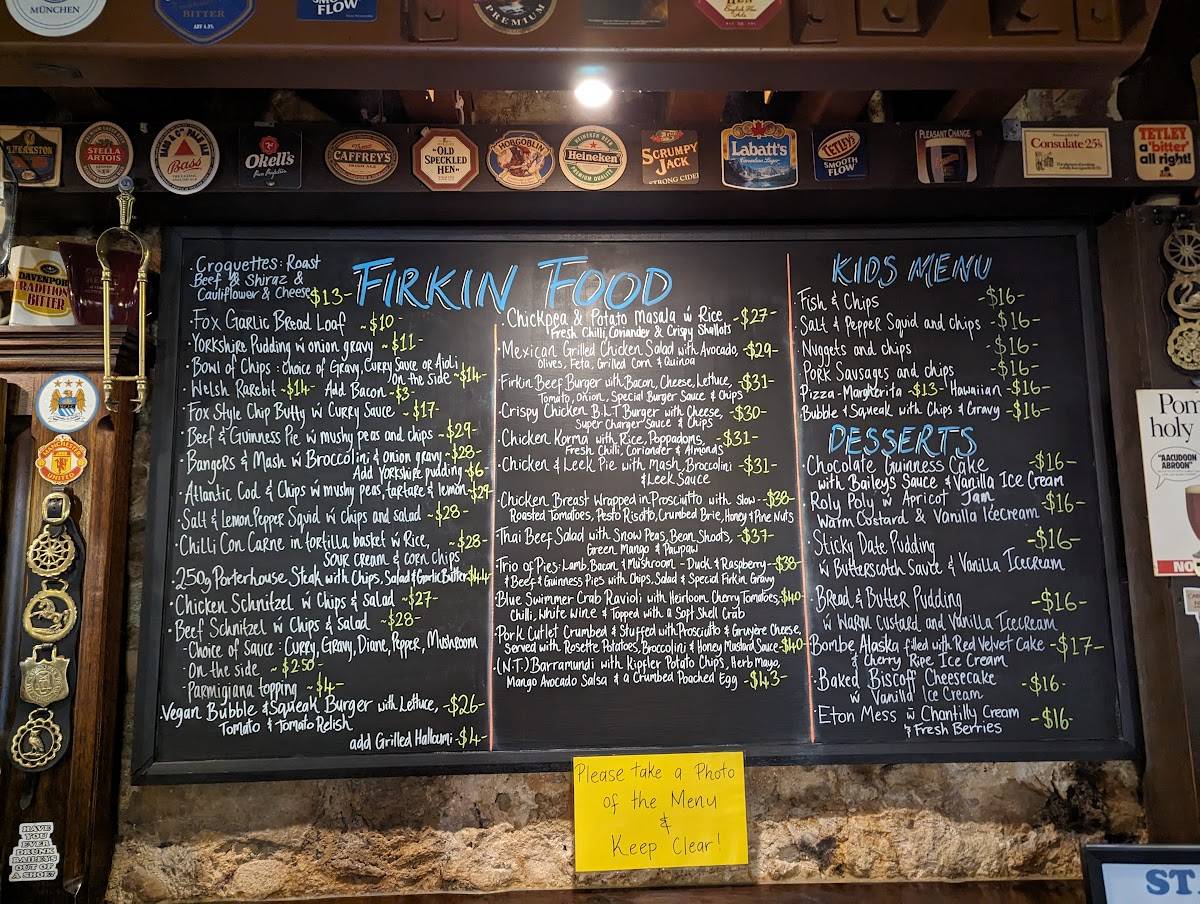 MÜNCHEN
BITTER
ABV 4.1%
SMOOTH
FLOW
PREMIUM
STELLA
ARTOIS
Bass
Okell's
CAFFREY'S
"OLD
SPECKLED
HEN"
HOBGOBLIN
Heineken
SCRUMPY
JACK
STRONG CIDER
Labatt's
Canadian Lager
TETLEY'S
SMOOTH
FLOW
PLEASANT CHANGE
Consulate 25's
TETLEY
a 'bitter'
all right!
DAVENPORTS
TRADITION
BITTER
MANCHESTER
UNITED
HAVE
YOU
EVER
DRUNK
BAILEYS
OUT OF
A SHOE?
FIRKIN FOOD
· Croquettes: Roast
Beef & Shiraz &
Cauliflower & Cheese $13-
· Fox Garlic Bread Loaf ~ $10 -
· Yorkshire Pudding w onion gravy ~ $11 -
· Bowl of Chips : choice of Gravy, Curry Sauce or Aioli
On the side ~ $14-
· Welsh Rarebit - $14- Add Bacon - $3-
· Fox Style Chip Butty w Curry Sauce ~ $17-
· Beef & Guinness Pie w mushy peas and chips - $29-
· Bangers & Mash w Broccolini & onion gravy - $28-
Add Yorkshire pudding - $6-
· Atlantic Cod & Chips w mushy peas, tartare & lemon - $29
· Salt & Lemon Pepper Squid w chips and salad ~ $28 -
· Chilli Con Carne in tortilla basket w Rice, - $28-
Sour cream & corn chips
· 250g Porterhouse Steak with Chips, Salad & Garlic Butter $44-
· Chicken Schnitzel w Chips & Salad ~ $27-
· Beef Schnitzel w Chips & Salad ~ $28-
- Choice of Sauce : Curry, Gravy, Diane, Pepper, Mushroom
- On the side ~ $2.50 -
- Parmigiana topping ~ $4-
· Vegan Bubble & Squeak Burger with Lettuce, - $26-
Tomato & Tomato Relish
add Grilled Halloumi - $4-
· Chickpea & Potato Masala w Rice - $27-
Fresh Chilli, Coriander & Crispy Shallots
· Mexican Grilled Chicken Salad with Avocado, - $29-
Olives, Feta, Grilled Corn & Quinoa
· Firkin Beef Burger with Bacon, Cheese, Lettuce, - $31-
Tomato, Onion, Special Burger Sauce & Chips
· Crispy Chicken B.L.T Burger with Cheese, - $30-
Super Charger Sauce & Chips
· Chicken Korma with Rice, Poppadoms, - $31-
Fresh Chilli, Coriander & Almonds
· Chicken & Leek Pie with Mash, Broccolini - $31-
& Leek Sauce
· Chicken Breast Wrapped in Prosciutto with Slow - - $38-
Roasted Tomatoes, Pesto Risotto, Crumbed Brie, Honey & Pine Nuts
· Thai Beef Salad with Snow Peas, Bean Shoots, - $37-
Green Mango & Pawpaw
· Trio of Pies: Lamb, Bacon & Mushroom - Duck & Raspberry - $38-
& Beef & Guinness Pies with Chips, Salad & Special Firkin Gravy
· Blue Swimmer Crab Ravioli with Heirloom Cherry Tomatoes, - $40-
Chilli, White Wine & Topped with a Soft Shell Crab
· Pork Cutlet Crumbed & Stuffed with Prosciutto & Gruyère Cheese,
Served with Rosette Potatoes, Broccolini & Honey Mustard Sauce - $40-
· (N.T.) Barramundi with Kipfler Potato Chips, Herb Mayo,
Mango Avocado Salsa & a Crumbed Poached Egg - $43-
KIDS MENU
· Fish & Chips - $16-
· Salt & Pepper Squid and chips - $16-
· Nuggets and chips - $16-
· Pork Sausages and chips - $16-
· Pizza - Margherita - $13- Hawaiian - $16-
· Bubble & Squeak with Chips & Gravy - $16-
DESSERTS
· Chocolate Guinness Cake - $16-
with Baileys Sauce & Vanilla Ice Cream
· Roly Poly w Apricot Jam - $16-
Warm Custard & Vanilla Icecream
· Sticky Date Pudding - $16-
w Butterscotch Sauce & Vanilla Icecream
· Bread & Butter Pudding - $16-
w Warm Custard and Vanilla Icecream
· Bombe Alaska filled with Red Velvet Cake - $17-
& Cherry Ripe Ice Cream
· Baked Biscoff Cheesecake - $16-
w Vanilla Ice Cream
· Eton Mess w Chantilly Cream - $16-
& Fresh Berries
Please take a Photo
of the Menu
&
Keep Clear!
holy
"AACUDOON
ABROON"
NO
ST